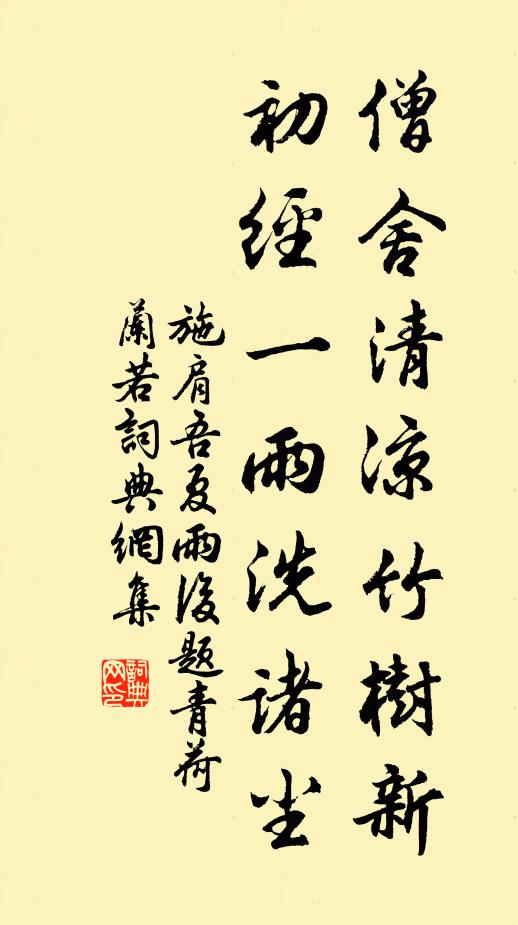 僧舍清涼竹樹新
初經一雨洗諸尘
施肩吾夏雨後題青荷
蘭若詞典網集
詞典
网印